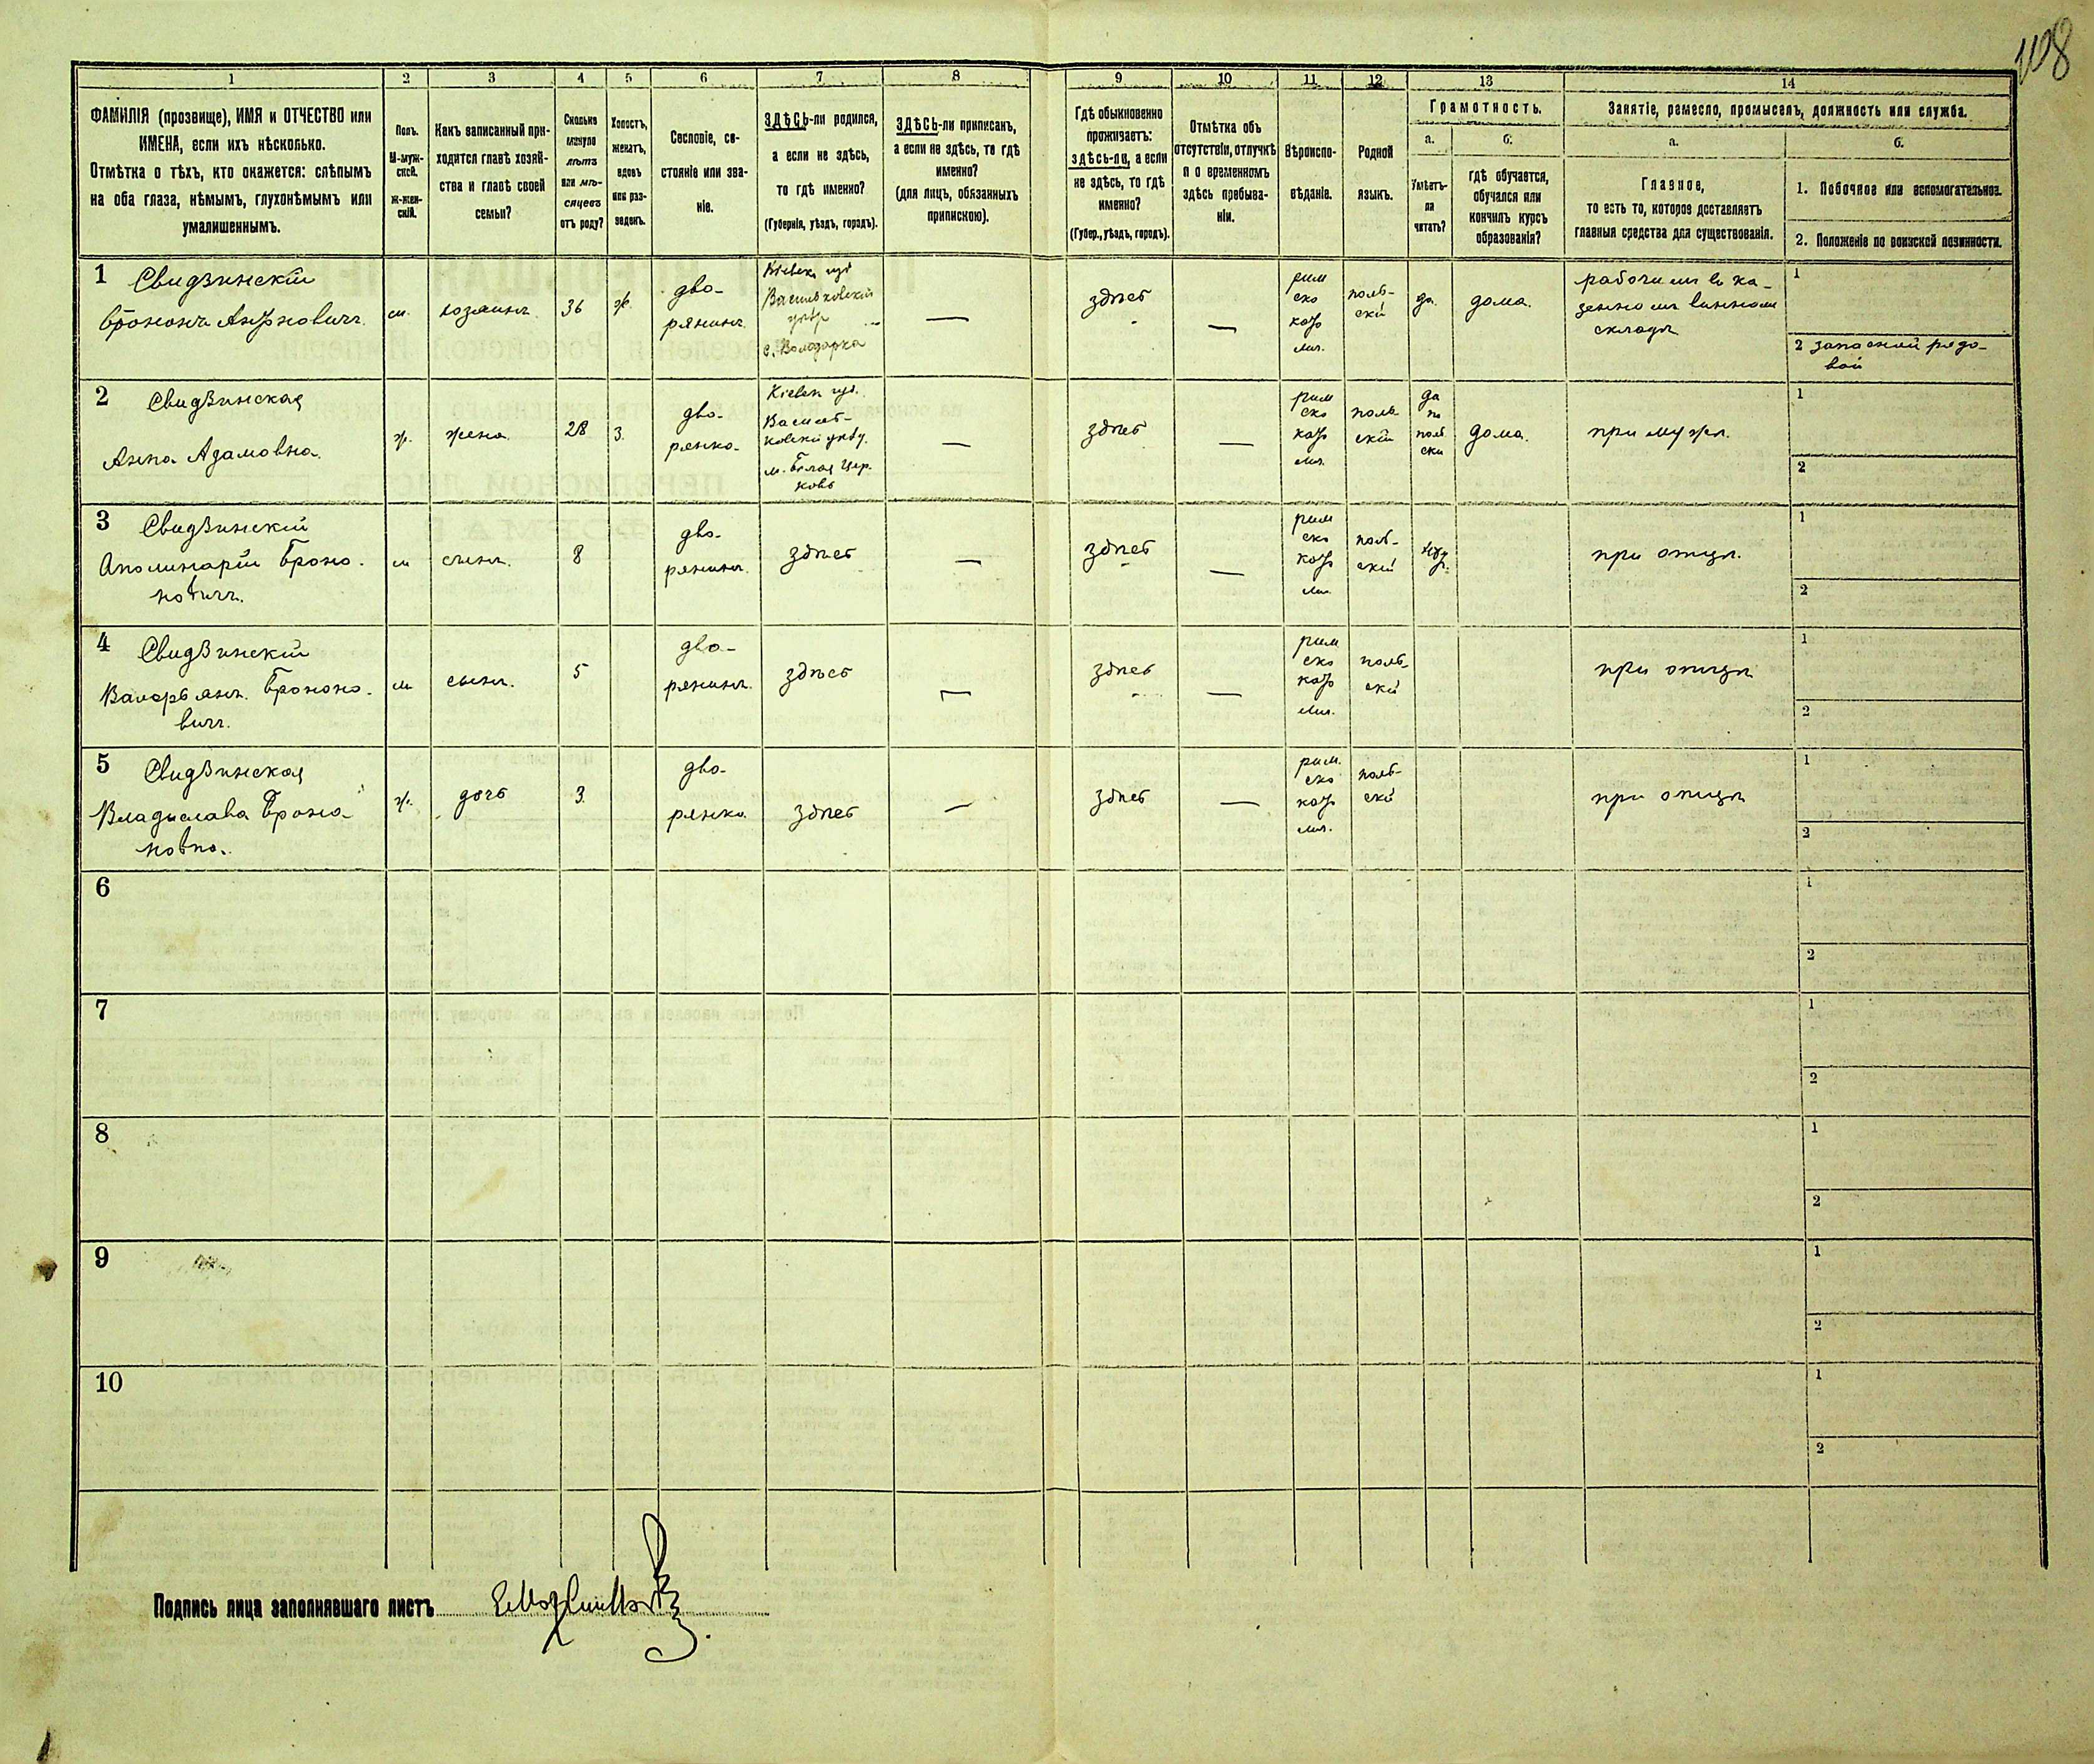 108
1 2 3 4 5 6 7 8 9 10 11 12 13 14
ФАМИЛІЯ (прозвище), ИМЯ и ОТЧЕСТВО или
ИМЕНА, если ихъ нѣсколько.
Отмѣтка о тѣхъ, кто окажется: слѣпымъ
на оба глаза, нѣмымъ, глухонѣмымъ или
умалишеннымъ.
Полъ.
М-муж-
ской.
Ж-жен-
скій.
Какъ записанный при-
ходится главѣ хозяй-
ства и главѣ своей
семьи?
Сколько
минуло
лѣтъ
или мѣ-
сяцевъ
отъ роду?
Холостъ,
женатъ,
вдовъ
или раз-
веденъ.
Сословіе, со-
стояніе или зва-
ніе.
ЗДѢСЬ-ли родился,
а если не здѣсь,
то гдѣ именно?
(Губернія, уѣздъ, городъ).
ЗДѢСЬ-ли приписанъ,
а если не здѣсь, то гдѣ
именно?
(для лицъ, обязанныхъ
припискою).
Гдѣ обыкновенно
проживаетъ:
здѣсь-ли, а если
не здѣсь, то гдѣ
именно?
(Губер., уѣздъ, городъ).
Отмѣтка объ
отсутствіи, отлучкѣ
и о временномъ
здѣсь пребыва-
ніи.
Вѣроиспо-
вѣданіе.
Родной
языкъ.
Грамотность.
а.
Умѣетъ-
ли
читать?
б.
гдѣ обучается,
обучался или
кончилъ курсъ
образованія?
Занятіе, ремесло, промыселъ, должность или служба.
а.
Главное,
то есть то, которое доставляетъ
главныя средства для существованія.
б.
1. Побочное или вспомогательное.
2. Положеніе по воинской повинности.
1 Свидзинскій
м. хозяинъ 36 ж.
дво-
рянинъ.
Кіевск. губ.
Васильковскій
уѣзд.
с. Володарка
здѣсь
рим
ско
като
лич.
поль-
скій
да. дома.
рабочимъ въ ка-
зенномъ винномъ
складѣ
1
2 запасной рядо-
вой
2 Свидзинская
Анна Адамовна.
ж. жена 28 з.
дво-
рянка.
Кіевск. губ.
Василь-
ковскій уѣзд.
м. Белая Цер-
ковь
здѣсь
рим
ско
като
лич.
поль
скій
да
по
поль
ски
дома. при мужѣ.
1
2
3 Свидзинскій
Аполинарій Броно-
новичъ.
м сынъ. 8
дво-
рянинъ.
здѣсь здѣсь
рим
ско
като
лич
поль-
скій
при отцѣ.
1
2
4 Свидзинскій
Валерьянъ Бронoно-
вичъ.
м сынъ. 5
дво-
рянинъ.
здѣсь здѣсь
рим
ско
като
лич.
поль-
скій
при отцѣ
1
2
5 Свидзинская
Владислава Броно-
новна.
ж. дочь 3
дво-
рянка.
здѣсь здѣсь
рим.
ско
като
лич.
поль-
скій
при отцѣ
1
2
6
1
2
7
1
2
8
1
2
9
1
2
10
1
2
Подпись лица заполнявшаго листъ